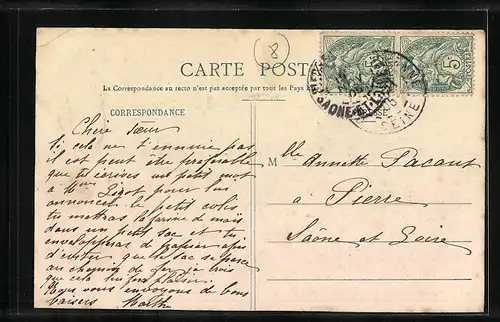 8
CARTE POST
La Correspondance au recto n'est pas acceptée par tous les Pays
CORRESPONDANCE
Chère sœur
Si cela ne t'ennuie pas
il est peut être préférable
que tu écrives un petit mot
à Mme pour lui
annoncer le petit colis
tu mettras la farine de maïs
dans un petit sac et tu
envelopperas de papier afin
d'éviter que le sac se perce
au chemin de fer je crois
que cela lui fera plaisir.
Nous vous envoyons de bons
baisers Marthe
Mlle Annette Pacaut
à Pierre
Saône et Loire
PIERRE
SAONE-ET-LOIRE
5